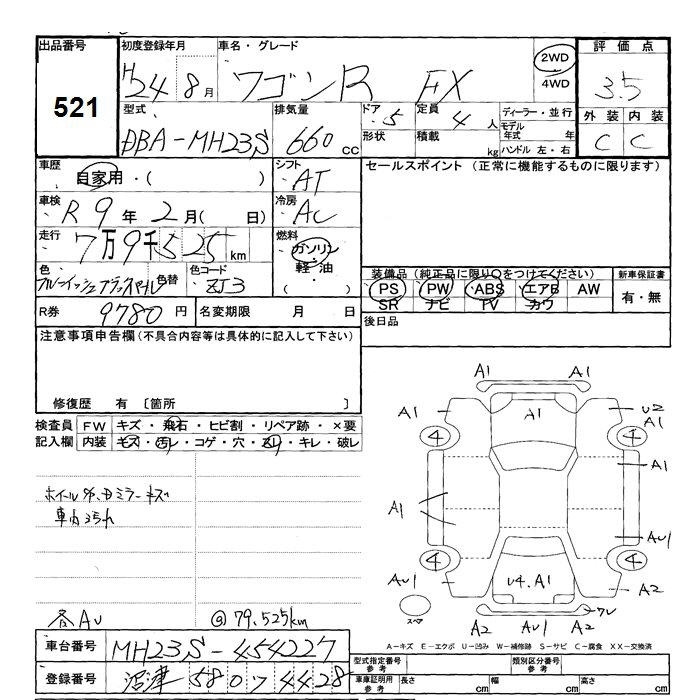 出品番号 初度登録年月 車名・グレード 評価点
521 H24 8月 ワゴンR FX 2WD 4WD 3.5
型式 排気量 ドア 5 定員 4人 ディーラー・並行 外装 内装
DBA-MH23S 660cc 形状 積載 kg モデル年式 年 ハンドル 左・右 C C
車歴 自家用・( ) シフト AT セールスポイント (正常に機能するものに限ります)
車検 R9年2月( 日) 冷房 AC
走行 7万9千525km 燃料 ガソリン・軽油・( )
色 ブルーイッシュブラックパール 色替 色コード ZJ3
装備品 (純正品に限り○をつけてください) 新車保証書
PS PW ABS エアB AW 有・無
SR ナビ TV カワ
R券 9780円 名変期限 月 日 後日品
注意事項申告欄(不具合内容等は具体的に記入して下さい)
修復歴 有 〔箇所 〕
検査員 FW キズ・飛石・ヒビ割・リペア跡・×要
記入欄 内装 キズ・汚レ・コゲ・穴・スレ・キレ・破レ
ミラーキズ
車内
各AU
@ 79,525km
A1 A1
A1 A1 U2
A1
4 4
A1 A1
AU1
4 4
AU1 U4.A1 A2
スペア
A2 AU1 A2
A-キズ E-エクボ U-凹み W-補修跡 S-サビ C-腐食 XX-交換済
車台番号 MH23S-454227
型式指定番号 参考 類別区分番号 参考
登録番号 沼津 580 ワ 4428
車庫証明用 参考 長さ cm 幅 cm 高さ cm